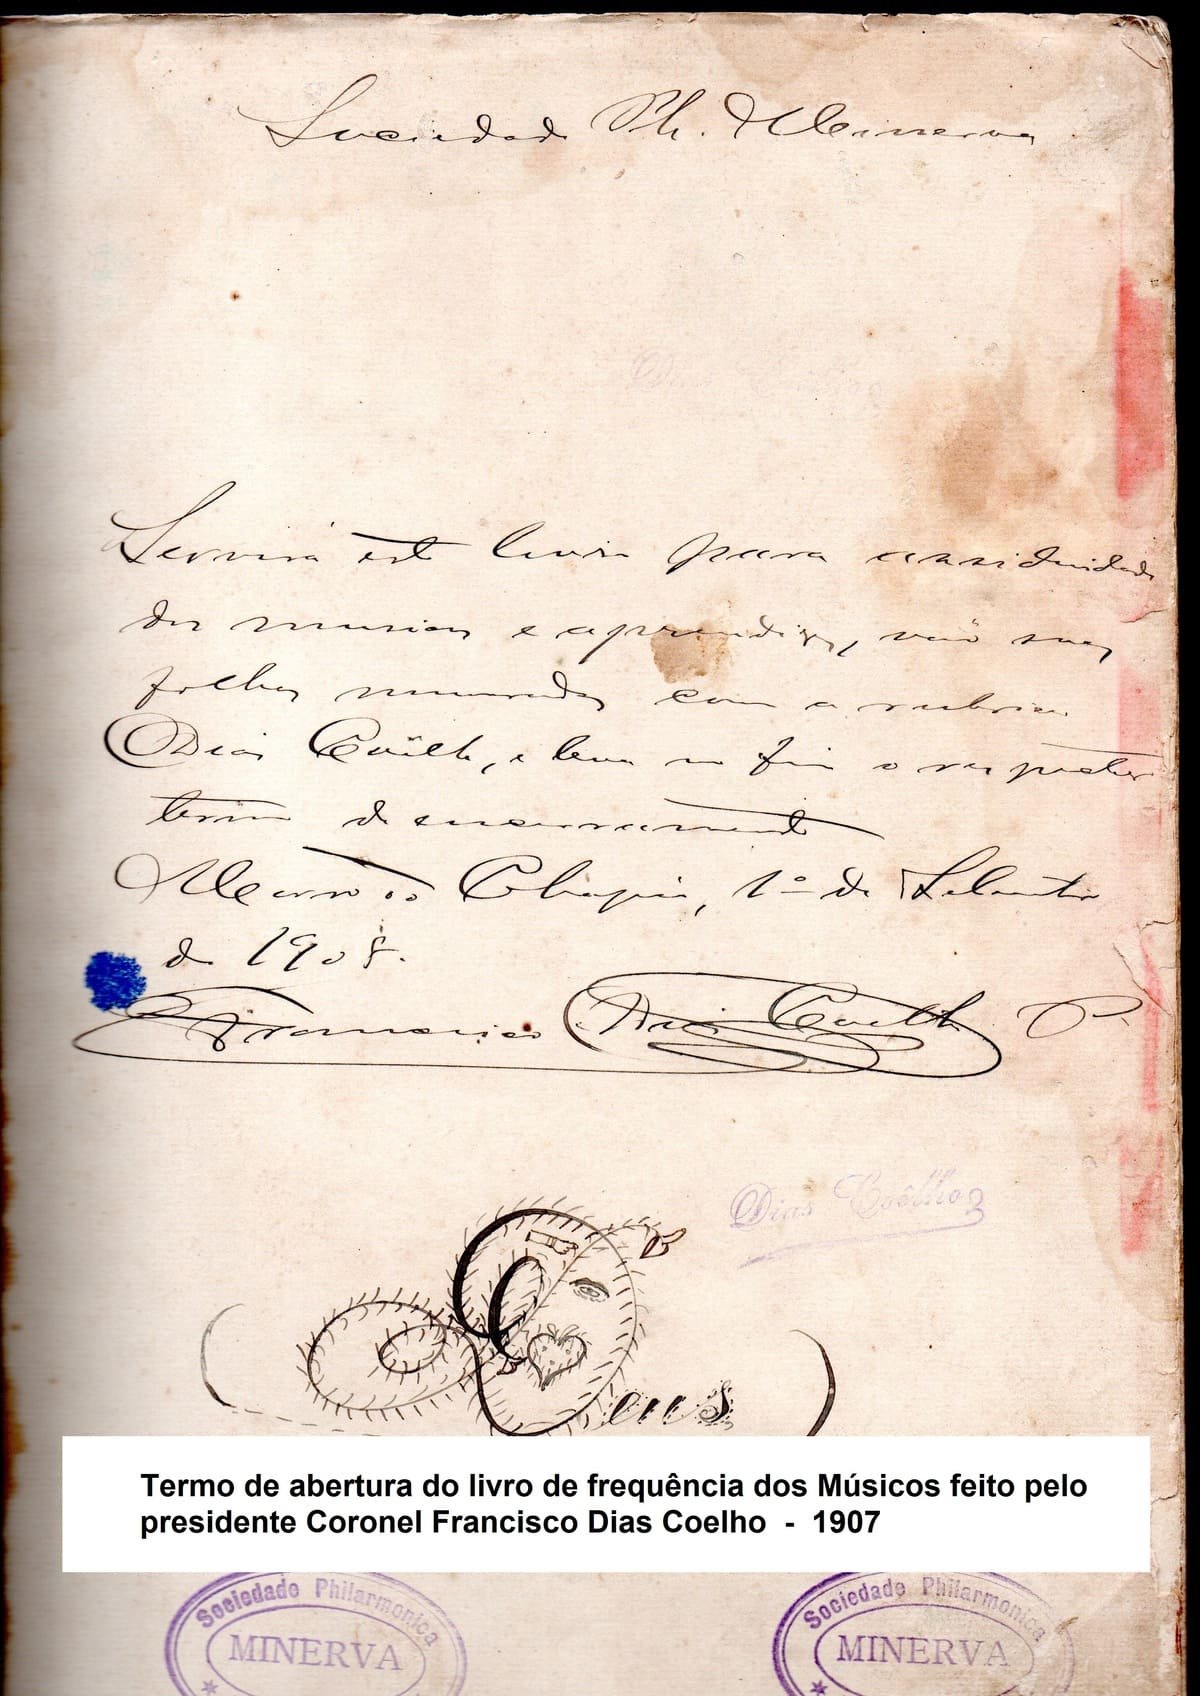 Sociedade Ph. Minerva
Servirá este livro para assiduidade
dos musicos e aprendizes, vão suas
folhas numeradas com a rubrica
Dias Coêlho, e leva no fim o respectivo
termo de encerramento
Morro do Chapéu, 1º de Setembro
de 1908.
Francisco Dias Coelho P.
Dias Coêlho
Deus
Termo de abertura do livro de frequência dos Músicos feito pelo
presidente Coronel Francisco Dias Coelho - 1907
Sociedade Philarmonica
MINERVA
Sociedade Philarmonica
MINERVA